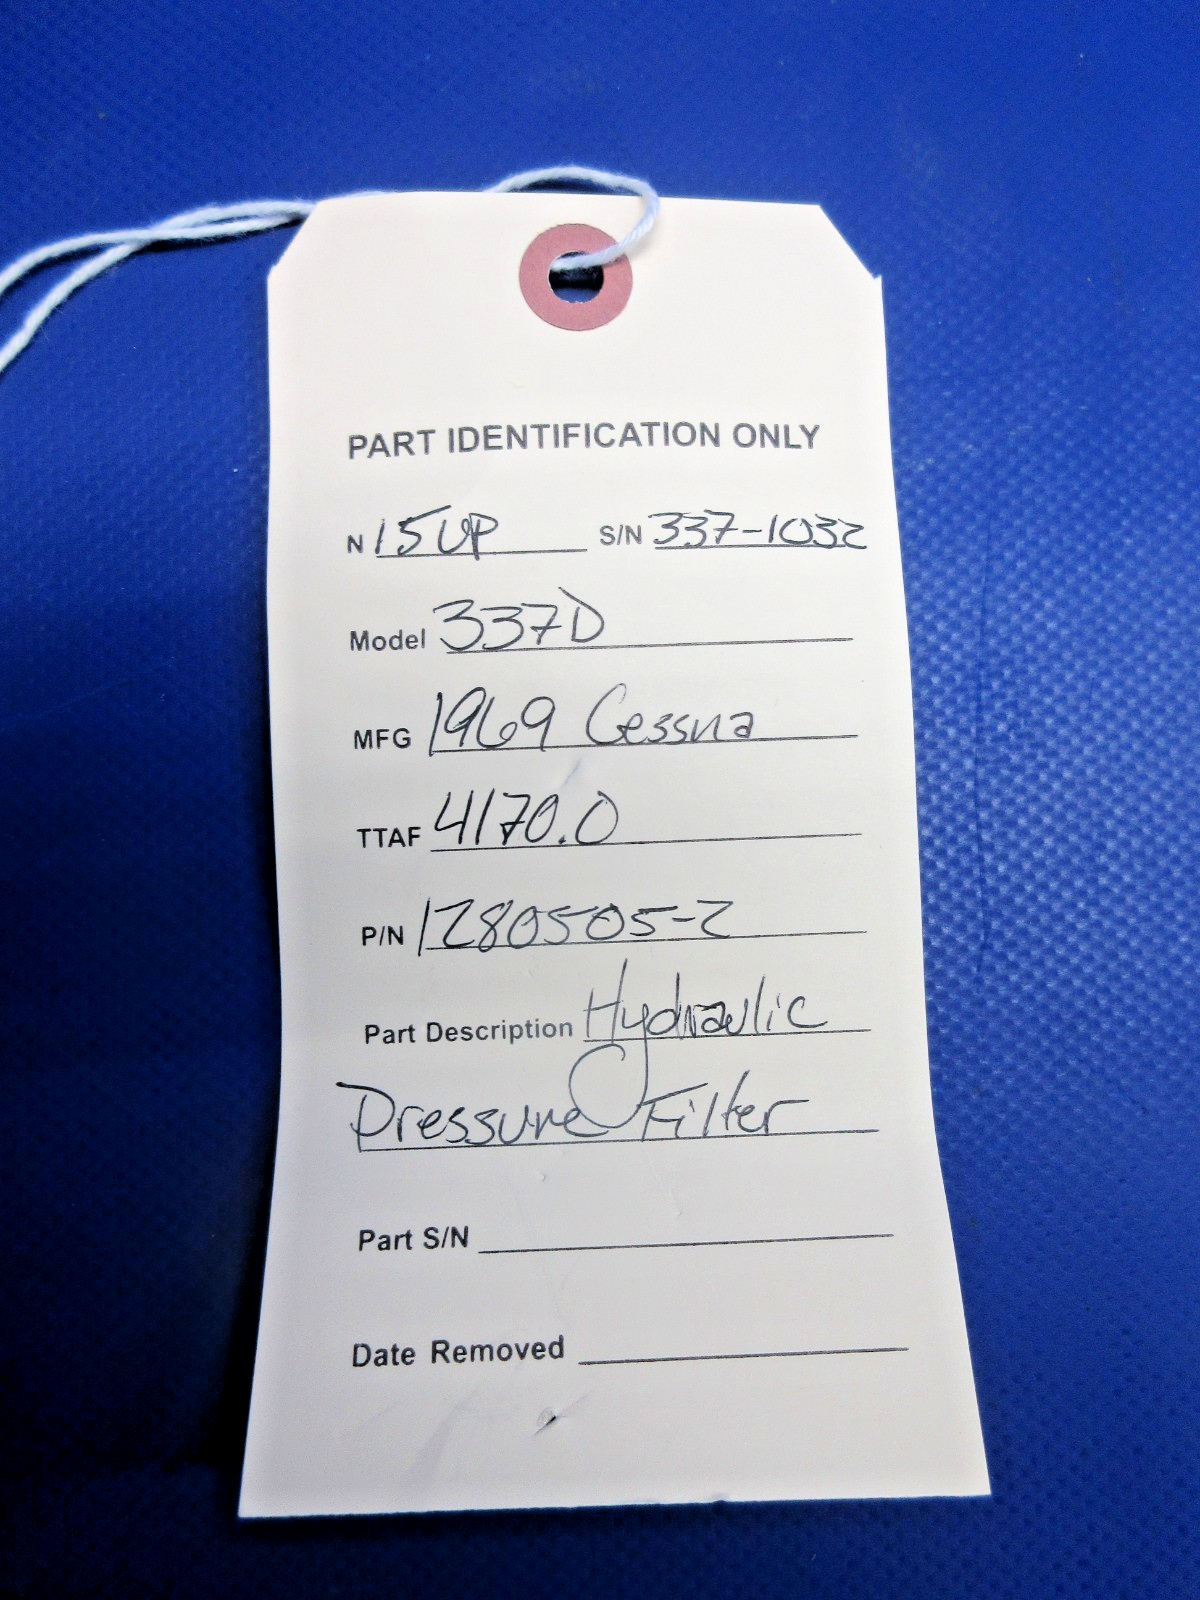 PART IDENTIFICATION ONLY
N 15UP S/N 337-1032
Model 337D
MFG 1969 Cessna
TTAF 4170.0
P/N 1280505-2
Part Description Hydraulic
Pressure Filter
Part S/N
Date Removed